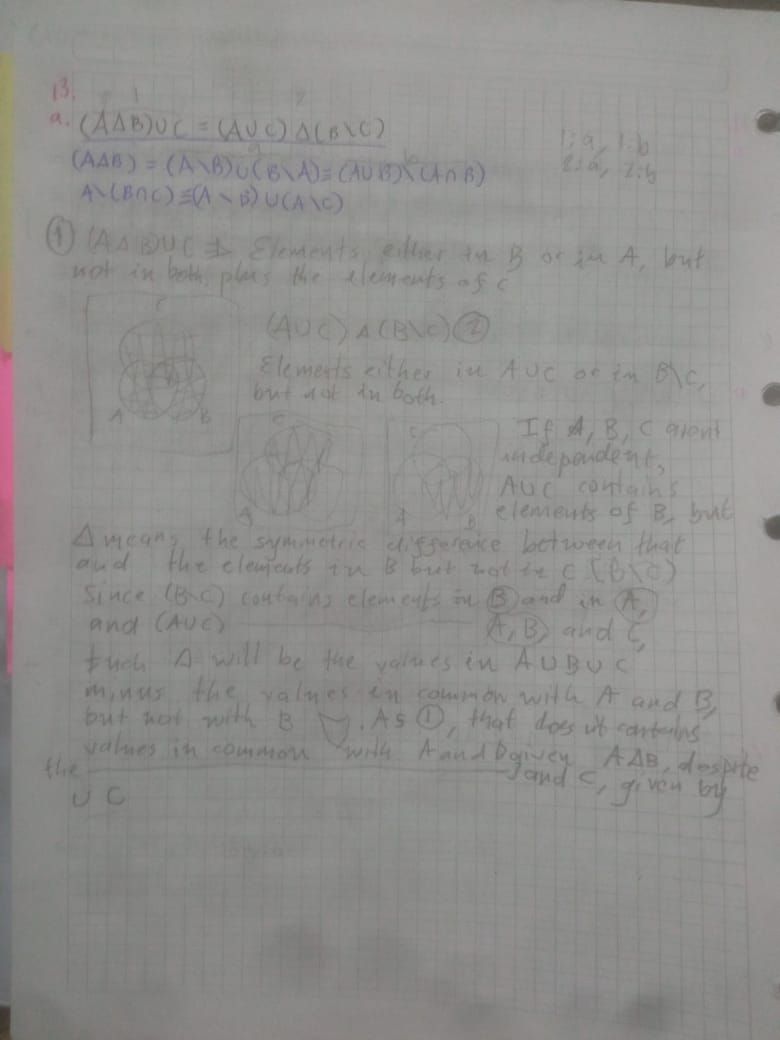 13.
a. (A∆B)∪C = (A∪C) ∆ (B\C)
1:a, 1:b
2:a, 2:b
(A∆B) = (A\B)∪(B\A) = (A∪B)\(A∩B)
A\(B∩C) = (A\B)∪(A\C)
① (A∆B)∪C Elements either in B or in A, but
not in both, plus the elements of C
C
A B
(A∪C) ∆ (B\C) ②
Elements either in A∪C or in B\C,
but not in both.
C
A
C
A B
If A, B, C arent
independent,
A∪C contains
elements of B, but
∆ means the symmetric difference between that
and the elements in B but not in C (B\C)
Since (B\C) contains elements in B and in A,
and (A∪C) A, B and C,
such ∆ will be the values in A∪B∪C
minus the values in common with A and B,
but not with B . As ①, that does it contains
values in common with A and B given A∆B, despite
the and C, given by
∪ C